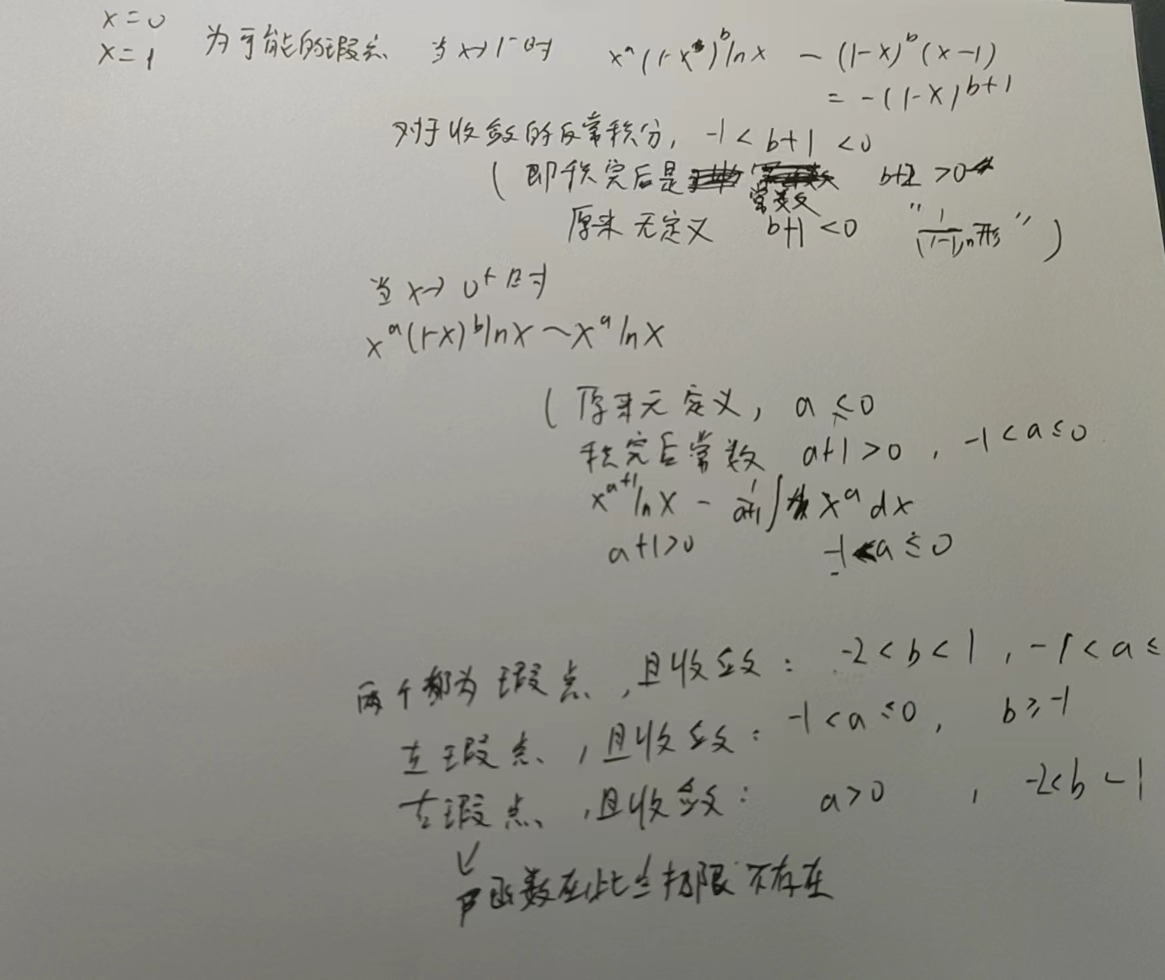 x=0
x=1 为可能的瑕点 当x→1⁻时 xᵃ(1-x)ᵇlnx ~ (1-x)ᵇ(x-1)
= -(1-x)ᵇ⁺¹
对于收敛的反常积分, -1<b+1<0
(即积完后是 常数 b+2>0
原来无定义 b+1<0 "1/(1-1)ⁿ形")
当x→0⁺时
xᵃ(1-x)ᵇlnx~xᵃlnx
(原来无定义, a≤0
积完后常数 a+1>0, -1<a≤0
xᵃ⁺¹lnx - 1/(a+1)∫xᵃdx
a+1>0 -1<a≤0
两个都为瑕点,且收敛: -2<b<1, -1<a≤
左瑕点,且收敛: -1<a≤0, b≥-1
右瑕点,且收敛: a>0, -2<b-1
↓
函数在此点极限不存在